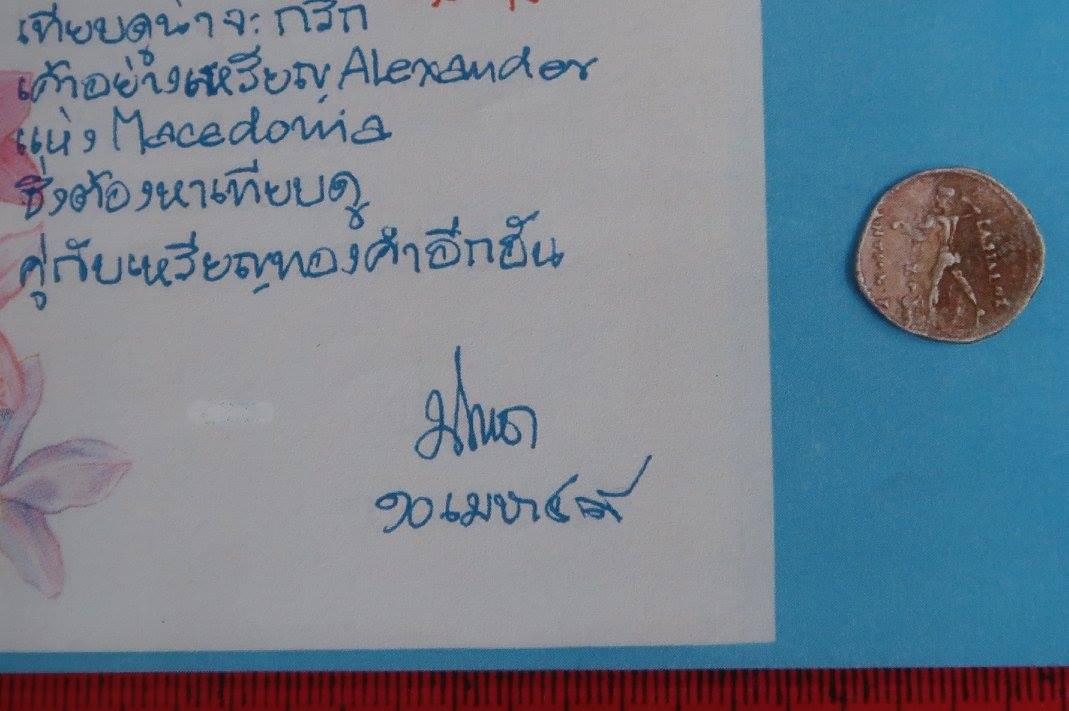 เทียบดูน่าจะกรีก
เค้าอย่างเหรียญ Alexander
แห่ง Macedonia
ซึ่งต้องหาเทียบดู
คู่กับเหรียญทองคำอีกอัน
๑๐ เมษา